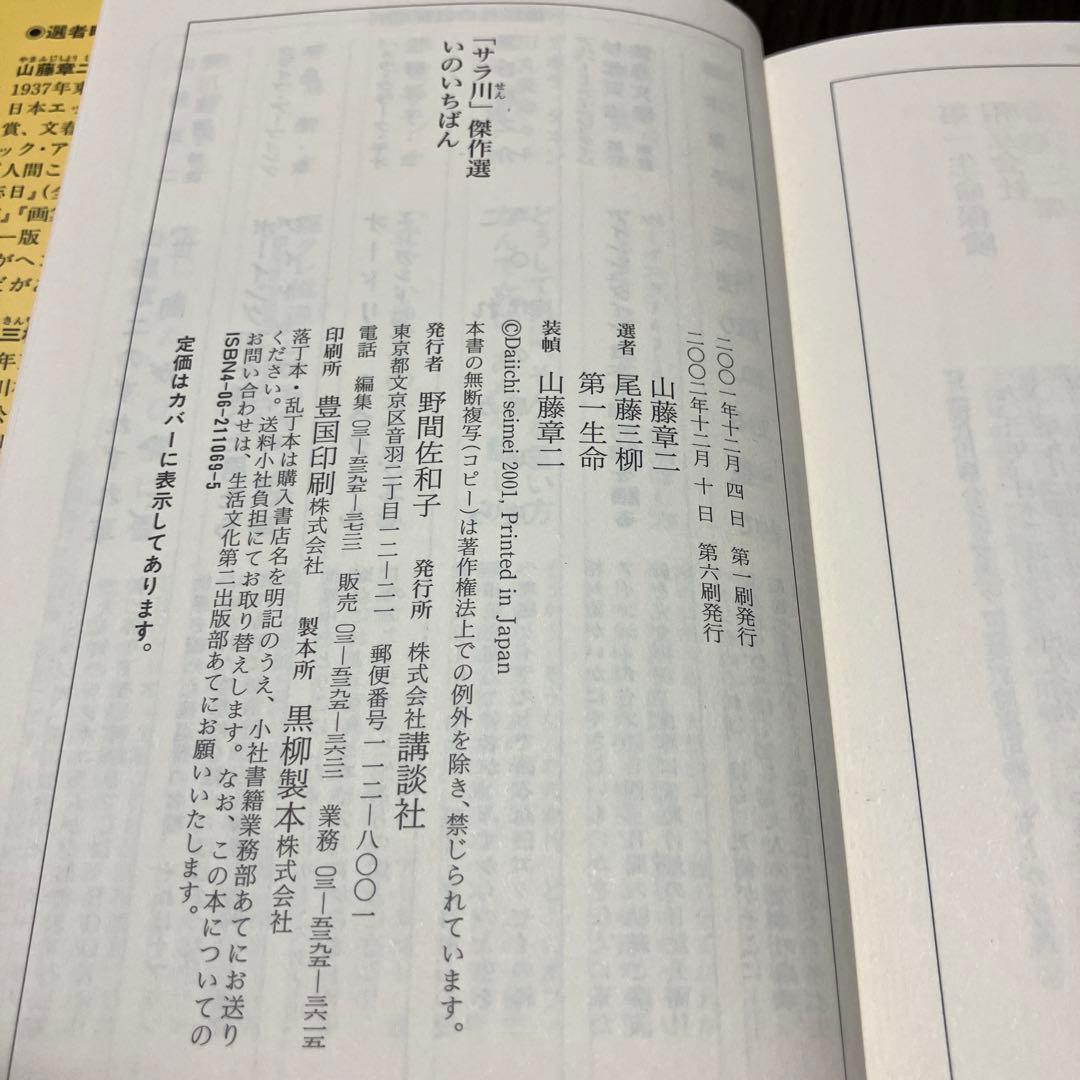 「サラ川」傑作選
せん
いのいちばん
二〇〇一年十二月 四日 第一刷発行
二〇〇二年十二月 十日 第六刷発行
山藤章二
選者 尾藤三柳
第一生命
装幀 山藤章二
©Daiichi seimei 2001, Printed in Japan
本書の無断複写(コピー)は著作権法上での例外を除き、禁じられています。
発行者 野間佐和子 発行所 株式会社講談社
東京都文京区音羽二丁目一二—二一 郵便番号一一二—八〇〇一
電話 編集〇三—五三九五—三五三三 販売〇三—五三九五—三六二二 業務〇三—五三九五—三六一五
印刷所 豊国印刷株式会社 製本所 黒柳製本株式会社
落丁本・乱丁本は購入書店名を明記のうえ、小社書籍業務部あてにお送り
ください。送料小社負担にてお取り替えします。なお、この本についての
お問い合わせは、生活文化第二出版部あてにお願いいたします。
ISBN4-06-211069-5
定価はカバーに表示してあります。
◉選者
やまふじしょう
山藤章二
1937年東
日本エッ
賞、文春
ック・ア
『人間こ
忘日』(全
』『画
ー版
がヘ
だがお
三
年
川